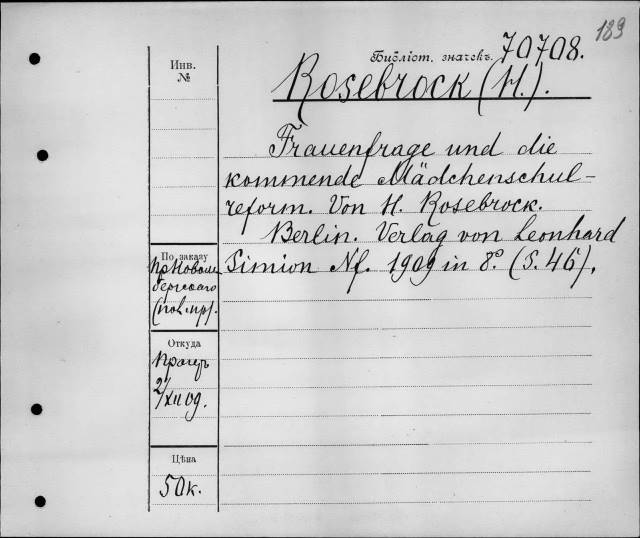 189
Библіот. значекъ. 70708.
Инв.
№
Rosebrock (H.).
Frauenfrage und die
kommende Mädchenschul-
reform. Von H. Rosebrock.
Berlin. Verlag von Leonhard
Simion Nf. 1909 in 8° (S. 46).
По заказу
Откуда
Прагеръ
2/XII 09.
Цѣна
50 к.